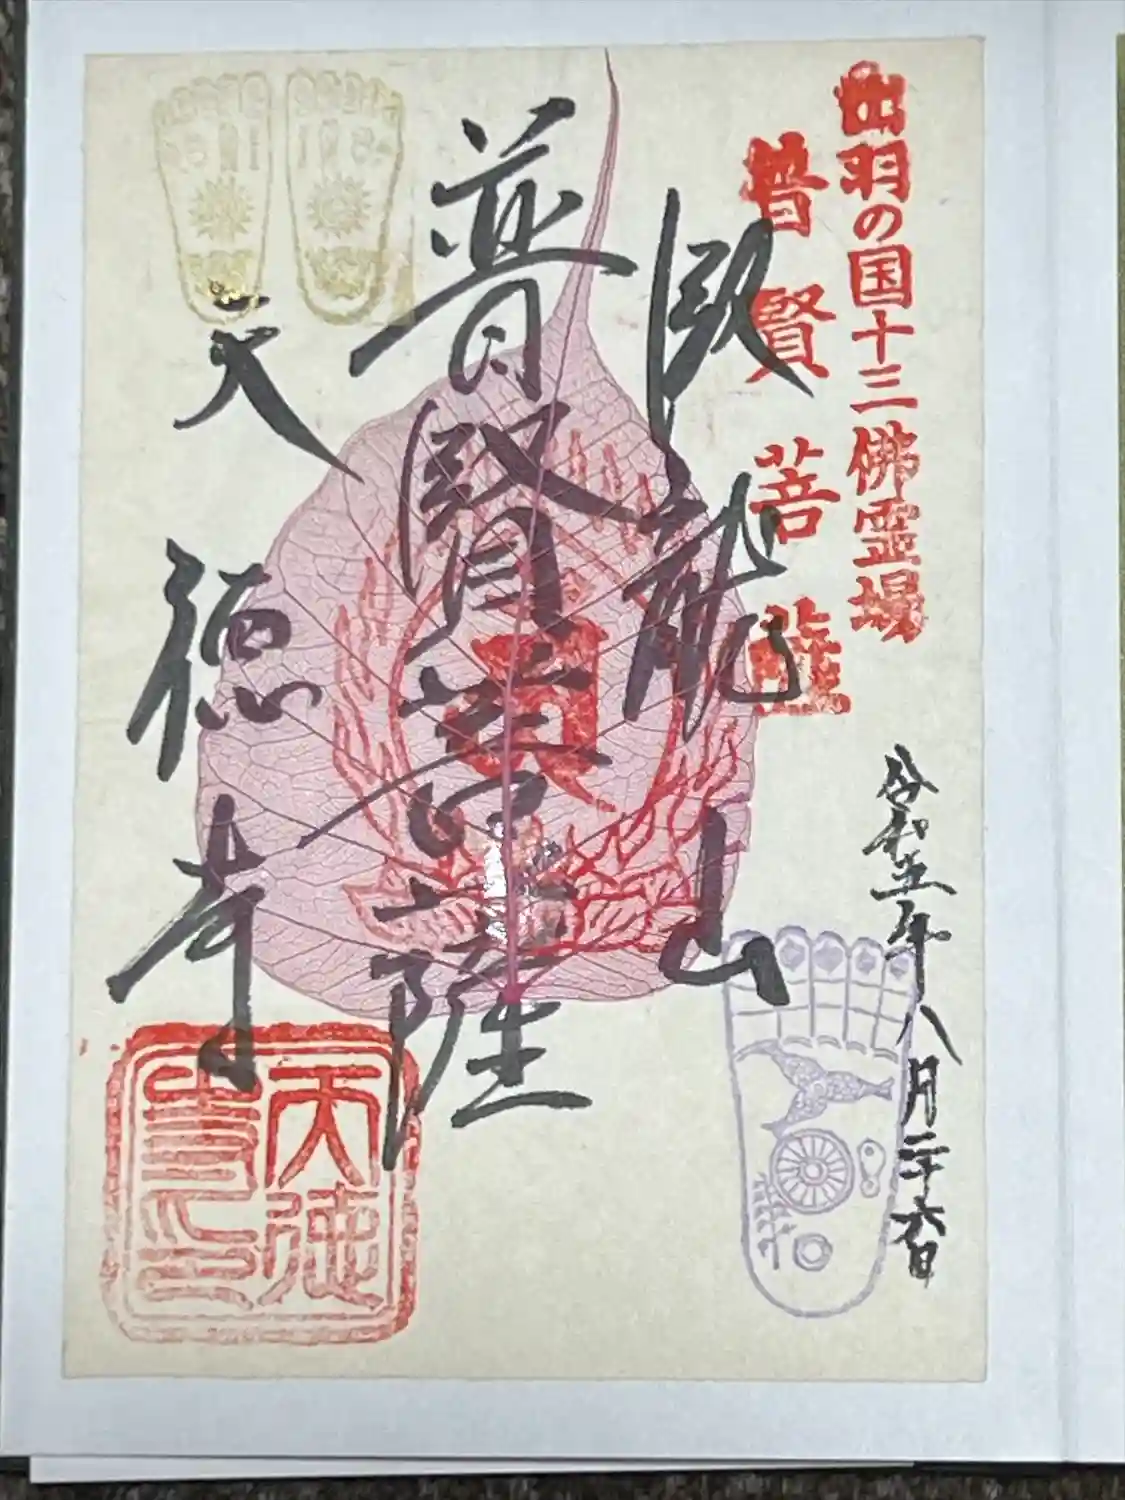 出羽の国十三佛霊場
普賢菩薩
令和五年八月二十六日
臥龍山
普賢菩薩
天徳寺
天徳
寺印